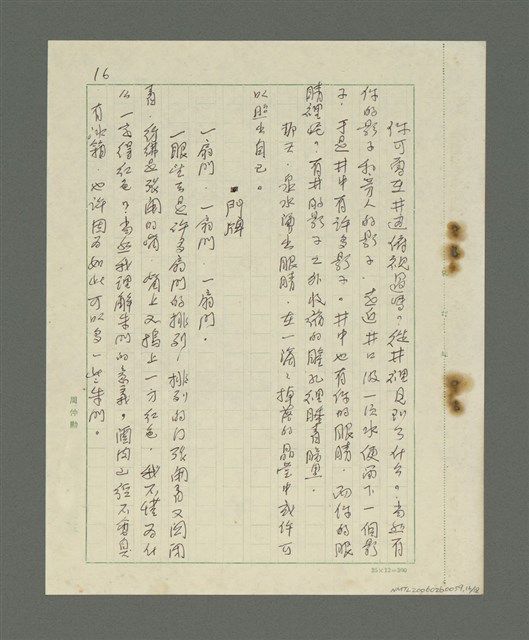 16
你可曾在井邊俯視過嗎?從井裡見到了什么。當然有
你的影子和旁人的影子,走近井口汲一次水便留下一個影
子,于是井中有許多影子。井中也有你的眼睛,而你的眼
睛裡呢?有井的影子之外收縮的瞳孔裡
那天,泉水湧出眼睛,在一滴滴掉落的晶瑩中或許可
以照出自己。
門牌
一扇門,一扇門,一扇門。
一眼望去是許多扇門的排列,排列的門張開着又関閉
着,彷彿是張開的嘴,嘴上又摀上一方紅色,我不懂為什
么一定得紅色?當然我理解朱門的意義,酒肉已經不會臭
有冰箱,也許因為如此可以多一些朱門。
周仲勲
25×12=300
NMTL20060260059,17/18